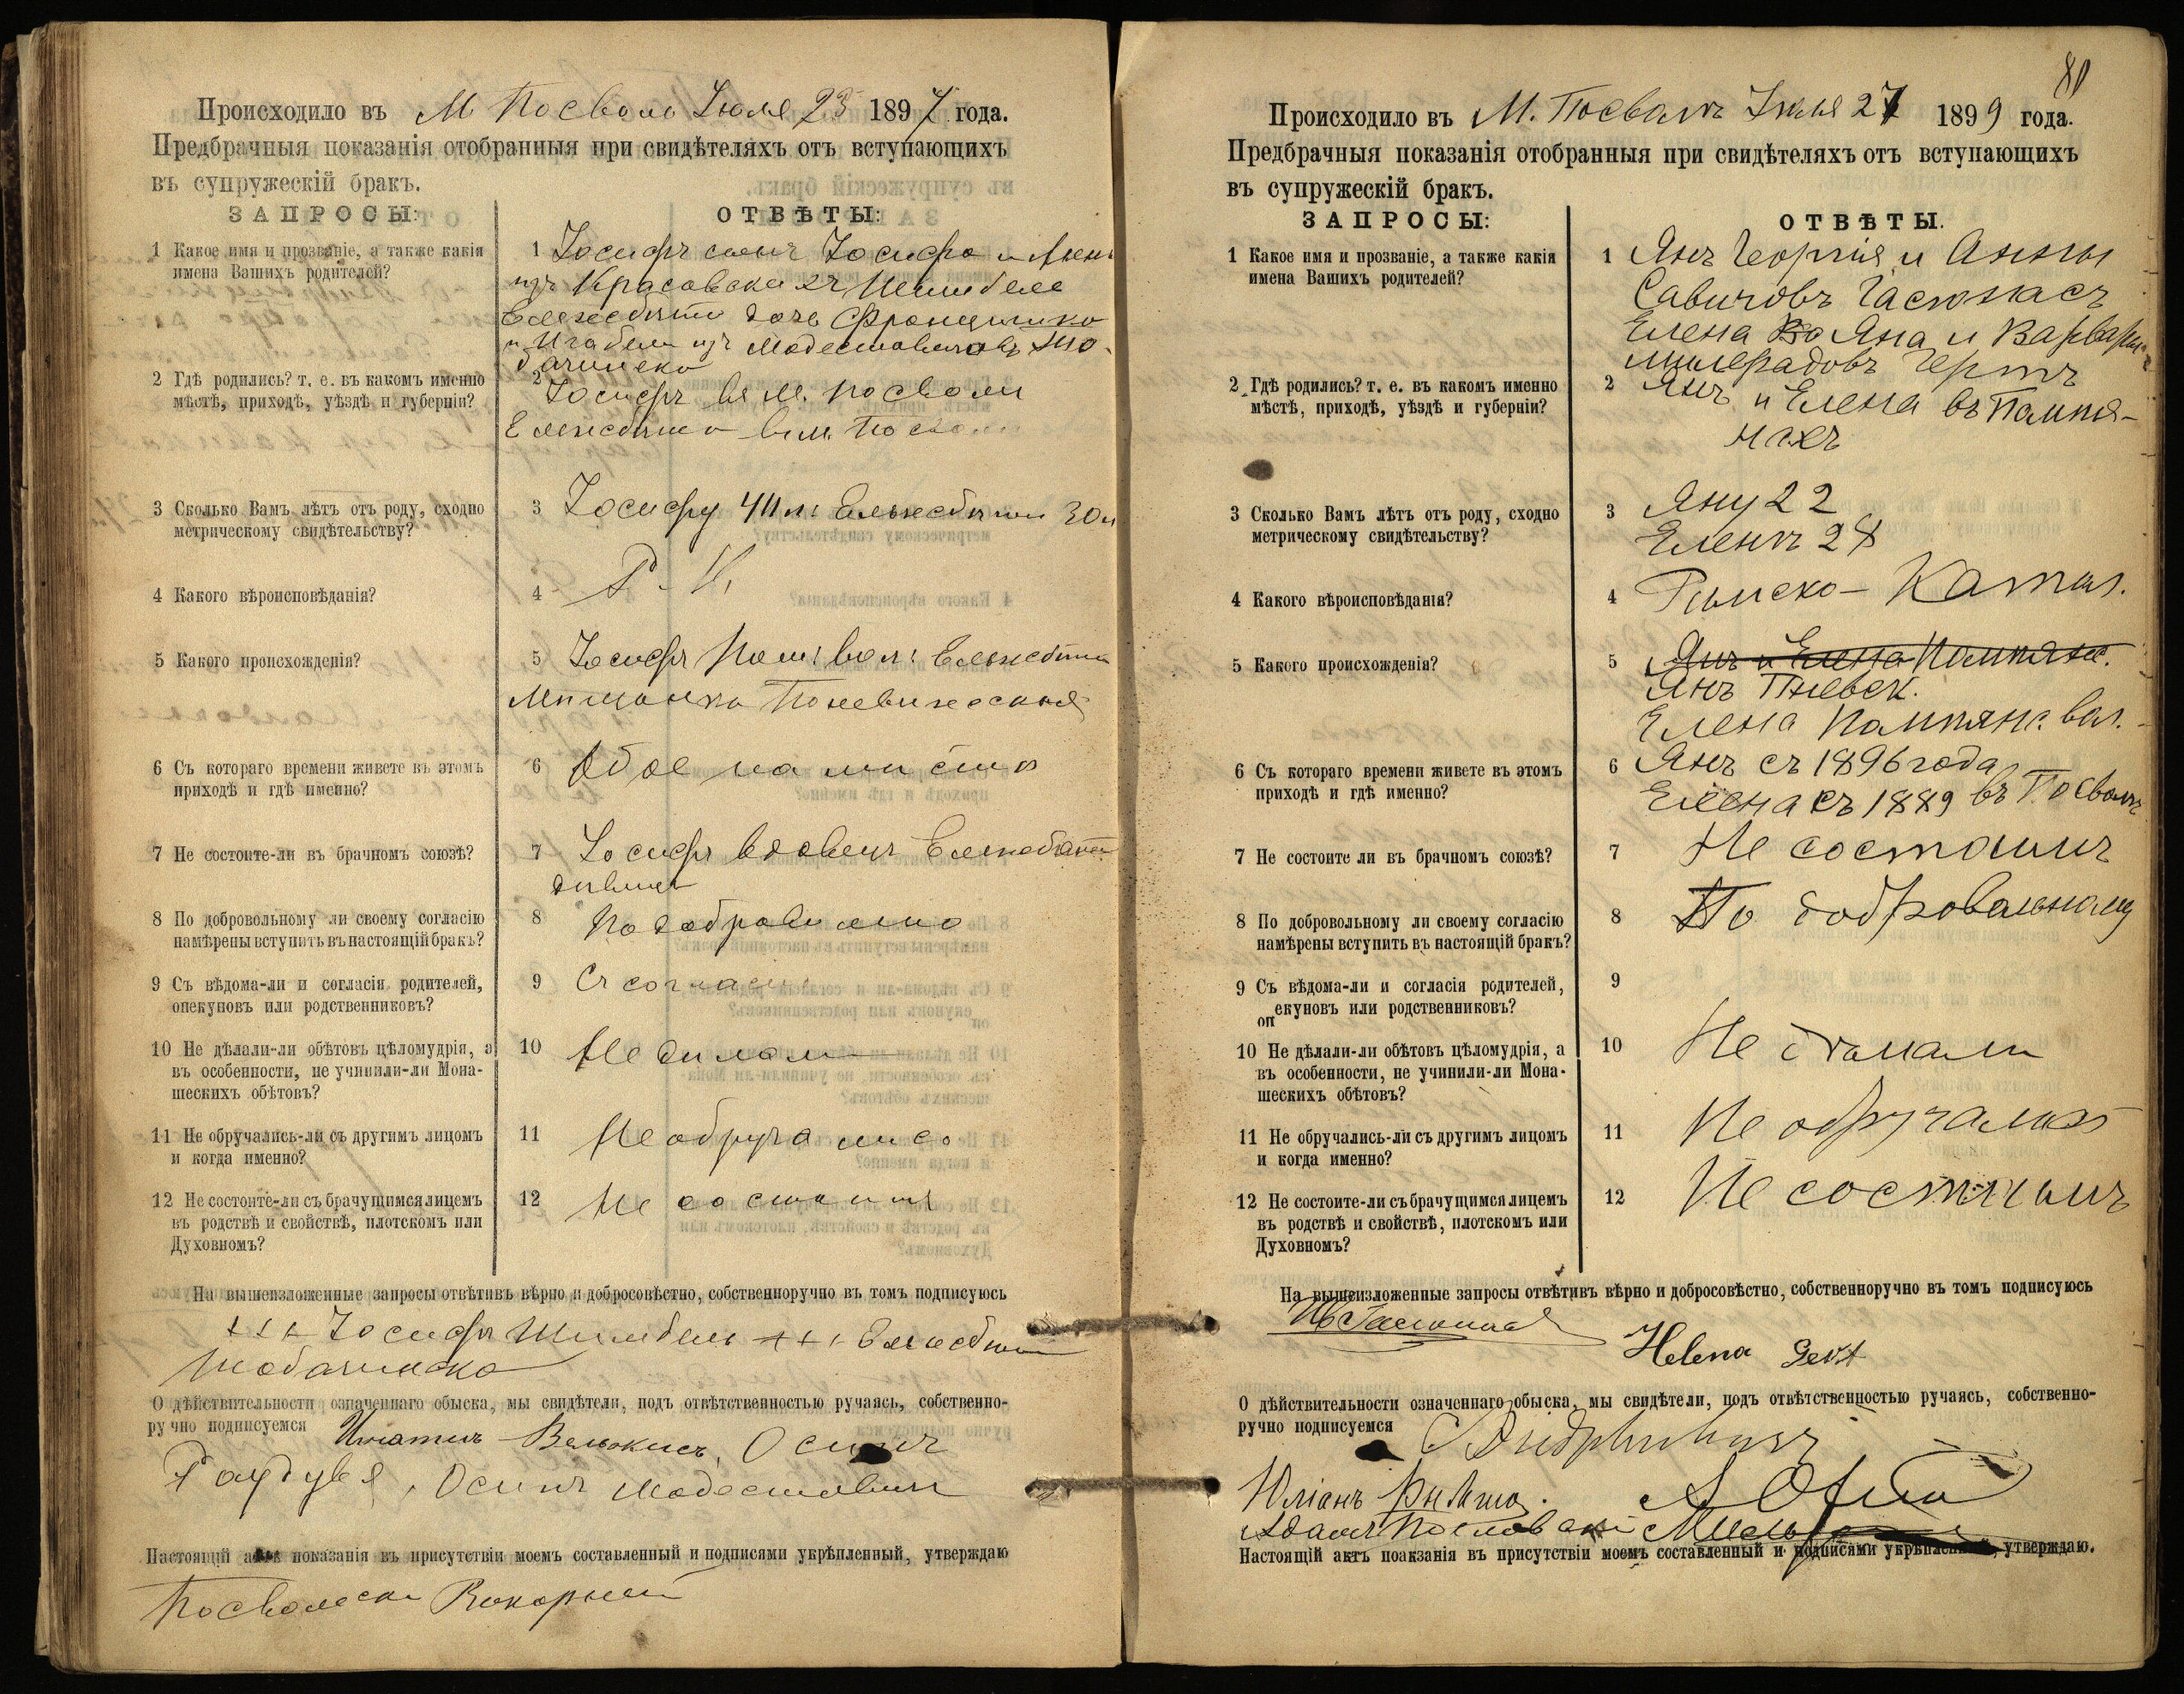 Происходило въ М Посволь Іюля 23 1897 года.
Предбрачныя показанія отобранныя при свидѣтеляхъ отъ вступающихъ
въ супружескій бракъ.
ЗАПРОСЫ:
ОТВѢТЫ:
1 Какое имя и прозваніе, а также какія
имена Вашихъ родителей?
1 Іосифъ сынъ Іосифа и
изъ
дочь Франциска
и изъ Модестовичовъ
2 Гдѣ родились? т. е. въ какомъ именно
мѣстѣ, приходѣ, уѣздѣ и губерніи?
2 Іосифъ въ м. Посволи
в м. Посво
3 Сколько Вамъ лѣтъ отъ роду, сходно
метрическому свидѣтельству?
3 Іосифу 30
4 Какого вѣроисповѣданія?
4 Р. К.
5 Какого происхожденія?
5 Іосифъ вол:
Мѣщанка Поневежская
6 Съ котораго времени живете въ этомъ
приходѣ и гдѣ именно?
6 Обое на мѣстѣ
7 Не состоите-ли въ брачномъ союзѣ?
7 Іосифъ вдовецъ
дѣвица
8 По добровольному ли своему согласію
намѣрены вступить въ настоящій бракъ?
8 По добровольно
9 Съ вѣдома-ли и согласія родителей,
опекуновъ или родственниковъ?
9 Съ согласія
10 Не дѣлали-ли обѣтовъ цѣломудрія, а
въ особенности, не учинили-ли Мона-
шескихъ обѣтовъ?
10 Не дѣлали
11 Не обручались-ли съ другимъ лицомъ
и когда именно?
11 Не обручалися
12 Не состоите-ли съ брачущимся лицемъ
въ родствѣ и свойствѣ, плотскомъ или
Духовномъ?
12 Не состоимъ
На вышеизложенные запросы отвѣтивъ вѣрно и добросовѣстно, собственноручно въ томъ подписуюсь
+++ Іосифъ +++
О дѣйствительности означеннаго обыска, мы свидѣтели, подъ отвѣтственностью ручаясь, собственно-
ручно подписуемся Игнатій Осипъ
Осипъ Модестовичъ
Настоящій актъ показанія въ присутствіи моемъ составленный и подписями укрѣпленный, утверждаю
80
Происходило въ М. Посволъ Іюля 27 1899 года.
Предбрачныя показанія отобранныя при свидѣтеляхъ отъ вступающихъ
въ супружескій бракъ.
ЗАПРОСЫ:
ОТВѢТЫ.
1 Какое имя и прозваніе, а также какія
имена Вашихъ родителей?
1 Янъ Георгія и Анны
Савичовъ Гасюнасъ
Елена Яна и Варвары
Гертъ
2 Гдѣ родились? т. е. въ какомъ именно
мѣстѣ, приходѣ, уѣздѣ и губерніи?
2 Янъ и Елена въ Помпя-
нахъ
3 Сколько Вамъ лѣтъ отъ роду, сходно
метрическому свидѣтельству?
3 Яну 22
Еленѣ 28
4 Какого вѣроисповѣданія?
4 Римско-Катол.
5 Какого происхожденія?
5 Янъ и Елена Помпянс.
Янъ
Елена Помпянс. вол.
6 Съ котораго времени живете въ этомъ
приходѣ и гдѣ именно?
6 Янъ съ 1896 года
Елена съ 1889 въ Посволѣ
7 Не состоите ли въ брачномъ союзѣ?
7 Не состоимъ
8 По добровольному ли своему согласію
намѣрены вступить въ настоящій бракъ?
8 По добровольному
9 Съ вѣдома-ли и согласія родителей,
опекуновъ или родственниковъ?
9
10 Не дѣлали-ли обѣтовъ цѣломудрія, а
въ особенности, не учинили-ли Мона-
шескихъ обѣтовъ?
10 Не дѣлали
11 Не обручались-ли съ другимъ лицомъ
и когда именно?
11 Не обручались
12 Не состоите-ли съ брачущимся лицемъ
въ родствѣ и свойствѣ, плотскомъ или
Духовномъ?
12 Не состоимъ
На вышеизложенные запросы отвѣтивъ вѣрно и добросовѣстно, собственноручно въ томъ подписуюсь
Helena Gert
О дѣйствительности означеннаго обыска, мы свидѣтели, подъ отвѣтственностью ручаясь, собственно-
ручно подписуемся
Юліанъ
Адамъ
Настоящій актъ поакзанія въ присутствіи моемъ составленный и подписями укрѣпленный, утверждаю.